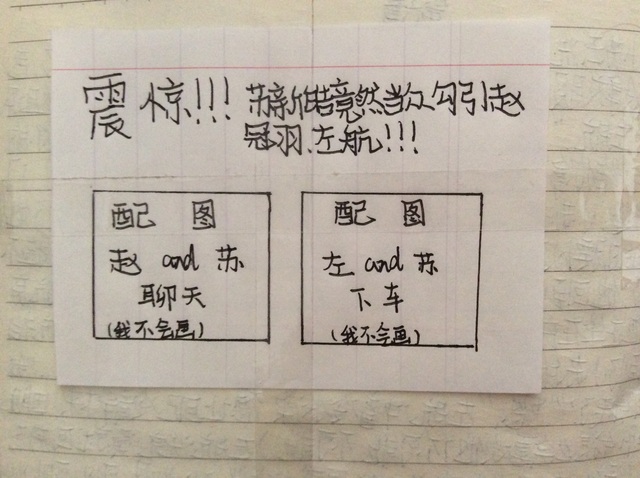 震惊!!! 苏新皓竟然当众勾引赵
冠羽、左航!!!
配 图
赵 and 苏
聊天
(我不会画)
配 图
左 and 苏
下车
(我不会画)